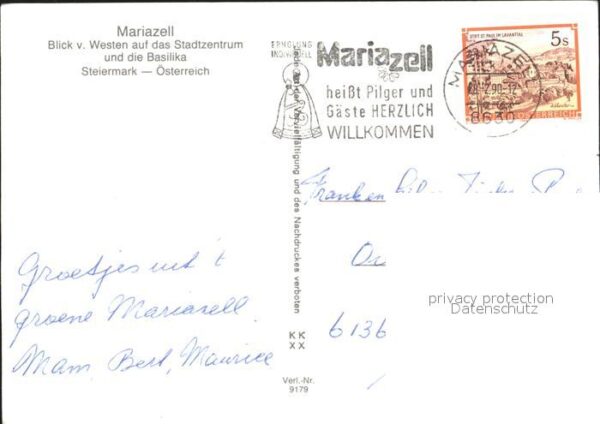 Mariazell
Blick v. Westen auf das Stadtzentrum
und die Basilika
Steiermark — Österreich
Groetjes uit 't
groene Mariazell
Mam, Bert, Maurice
Vervielfältigung und des Nachdruckes verboten
KK
XX
Verl.-Nr.
9179
ERHOLUNG
INDIVIDUELL
Mariazell
heißt Pilger und
Gäste HERZLICH
WILLKOMMEN
STIFT ST. PAUL IM LAVANTTAL
5s
REPUBLIK ÖSTERREICH
MARIAZELL
8630
6136
privacy protection
Datenschutz